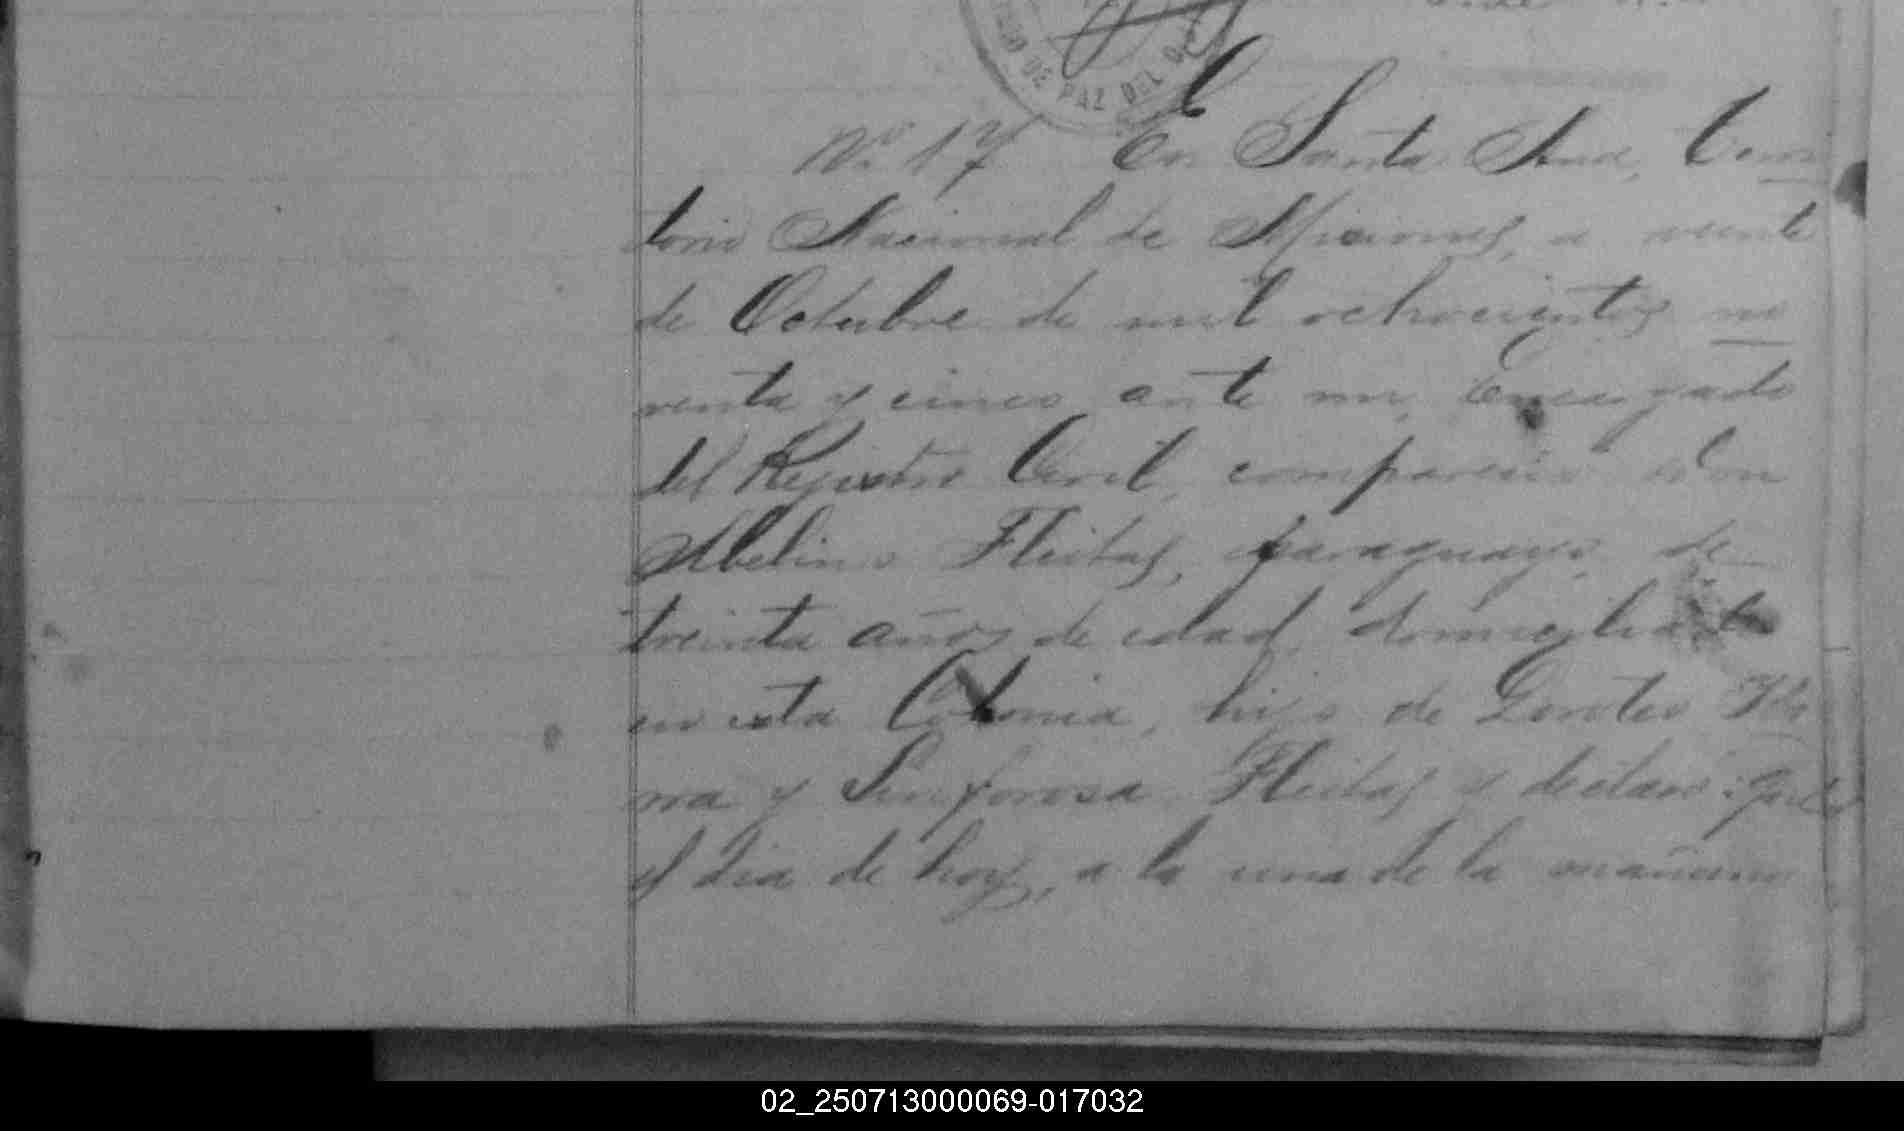 DE PAZ DEL
Nº 17 En Santa Ana, Terri
torio Nacional de Misiones, a veinte
de Octubre de mil ochocientos no
venta y cinco ante mi, Encargado
del Registro Civil, compareció don
Abelino Fleitas, paraguayo, de
treinta años de edad, domiciliado
en esta Colonia, hijo de Doroteo
y Sinforosa Fleitas y declaró: que
el dia de hoy, a la una de la mañana
02_250713000069-017032